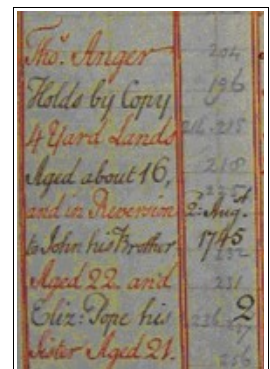 Tho.s Anger
Holds by Copy
4 Yard Lands
Aged about 16,
and in Reversion
to John his Brother
Aged 22 and
Eliz: Pope his
Sister Aged 21.
204
196
218
2.d Aug.t
1745
231
2
256